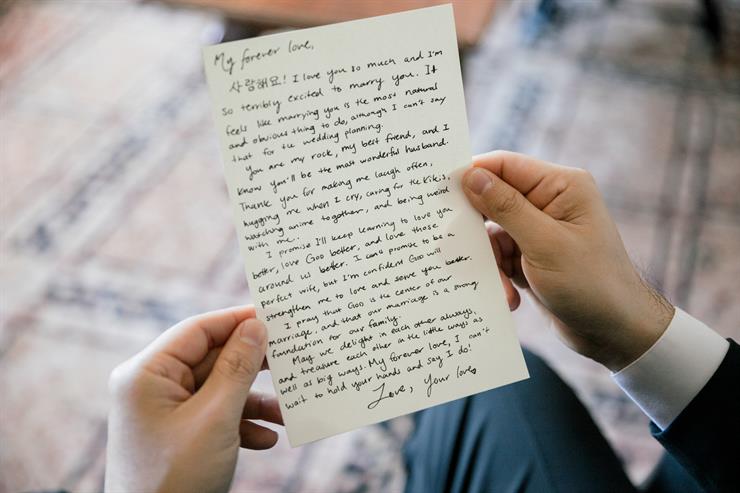 My forever love,
사랑해요! I love you so much and I'm
so terribly excited to marry you. It
feels like marrying you is the most natural
and obvious thing to do, although I can't say
that for the wedding planning.
You are my rock, my best friend, and I
know you'll be the most wonderful husband.
Thank you for making me laugh often,
hugging me when I cry, caring for the kikis,
watching anime together, and being weird
with me.
I promise I'll keep learning to love you
better, love God better, and love those
around us better. I can't promise to be a
perfect wife, but I'm confident God will
strengthen me to love and serve you better.
I pray that God is the center of our
marriage, and that our marriage is a strong
foundation for our family.
May we delight in each other always,
and treasure each other in the little ways as
well as big ways. My forever love, I can't
wait to hold your hands and say I do!
Love, Your love